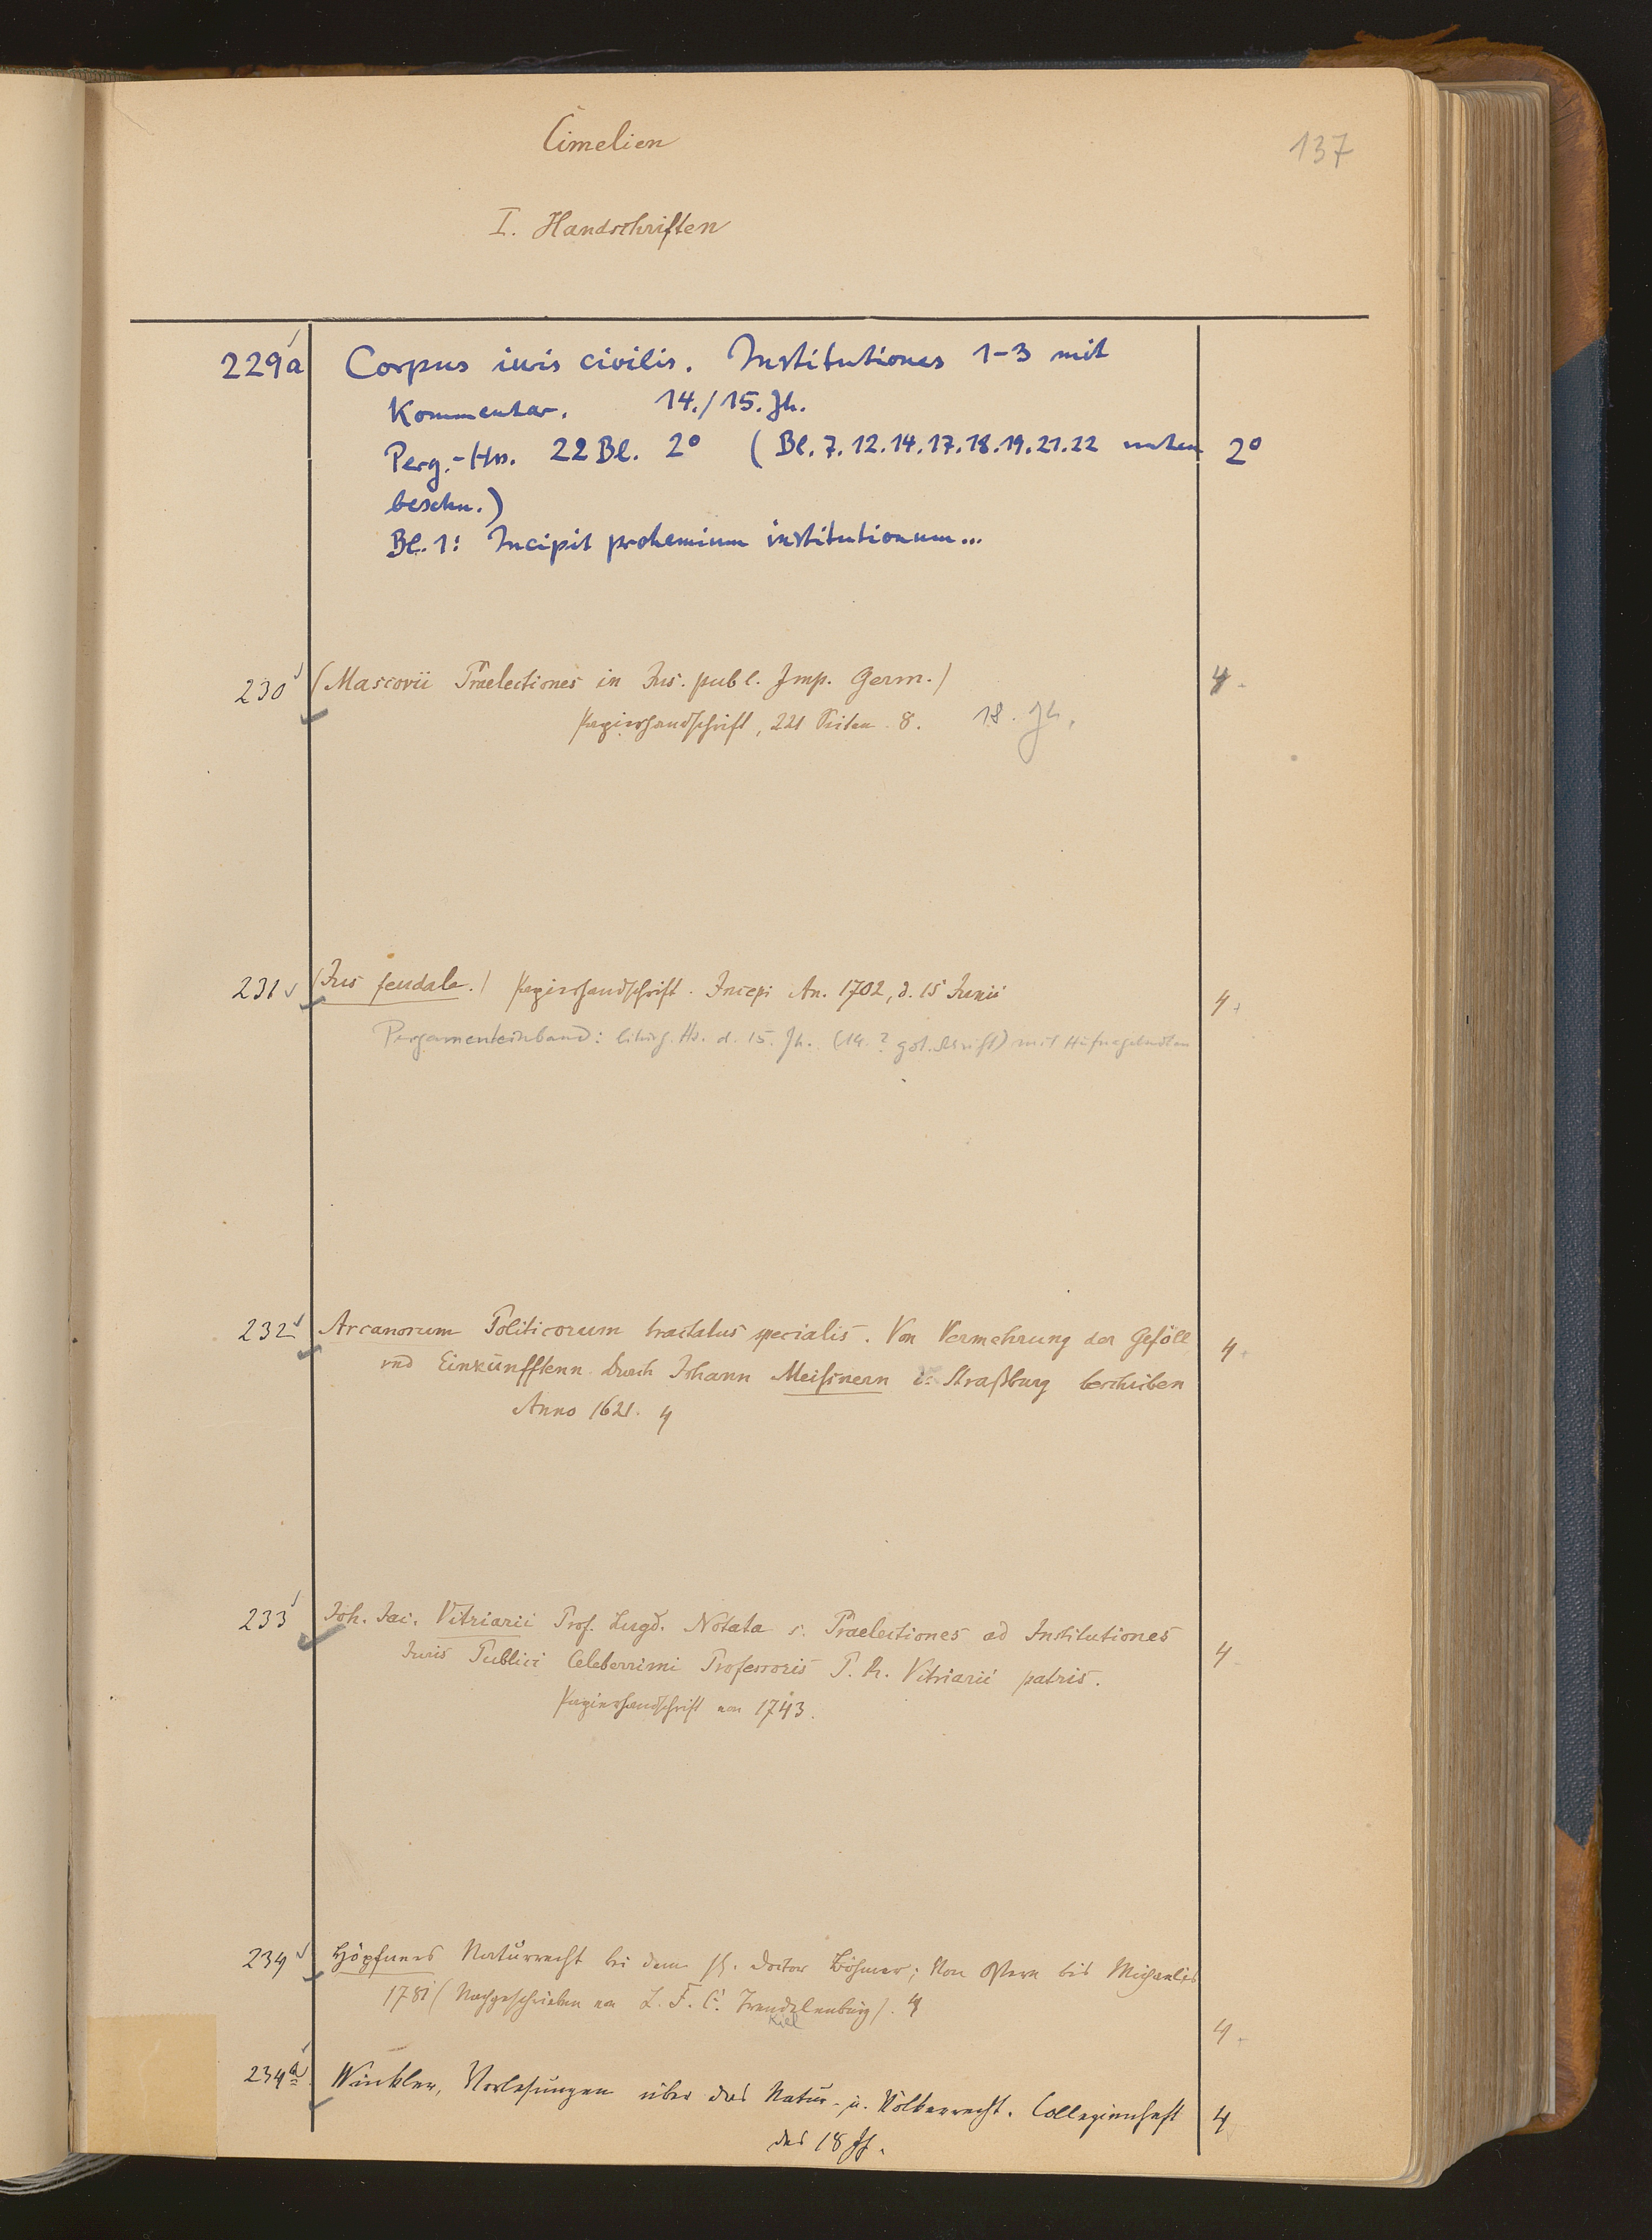 Cimelien
137
I. Handschriften
229a Corpus iuris civilis. Institutiones 1-3 mit
Kommentar. 14./15. Jh.
Perg.-Hs. 22 Bl. 2° (Bl. 7.12.14.17.18.19.21.22 unten 2°
beschn.)
Bl. 1: Incipit prohemium institutionum...
230 (Mascovii Praelectiones in Jus. publ. Imp. Germ.) 4
Papierhandschrift, 221 Seiten. 8. 18. Jh.
231 (Jus feudale.) Papierhandschrift. Incepi An. 1702, d. 15 Junii 4
Pergamenteinband: liturg. Hs. d. 15. Jh. (14. ? got. Schrift) mit Hufnagelnoten
232 Arcanorum Politicorum tractatus specialis. Von Vermehrung der Geföll 4
vnd Einkünfftenn durch Johann Meissnern Straßburg beschriben
Anno 1621. 4
233 Joh. Jac. Vitriarii Prof. Lugd. Notata s. Praelectiones ad Institutiones
Juris Publici Celeberrimi Professoris P. R. Vitriarii patris. 4
Papierhandschrift von 1743.
234 Höpfners Naturrecht bei dem H. Doctor Böhmer; Von Ostern bis Michaelis
1781 (Nachgeschrieben von L. F. C. Trendelenburg). 4
Kiel
4
234a Winkler, Vorlesungen über das Natur- u. Völkerrecht. Collegienheft 4
des 18 Jh.